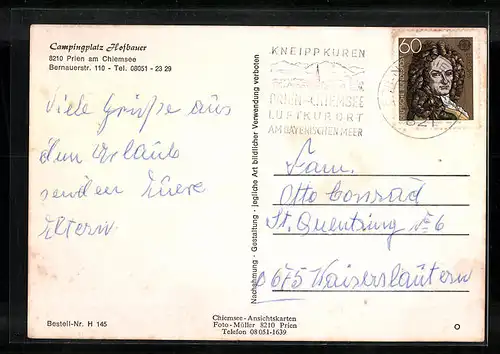 Campingplatz Hofbauer
8210 Prien am Chiemsee
Bernauerstr. 110 - Tel. 08051 - 23 29
Viele Grüße aus
dem Urlaub
senden Euere
Eltern
Bestell-Nr. H 145
Nachahmung - Gestaltung - jegliche Art bildlicher Verwendung verboten
KNEIPPKUREN
PRIEN-CHIEMSEE
LUFTKURORT
AM BAYERISCHEN MEER
821
60
Fam.
Otto Conrad
St. Quentinring No 6
6675 Kaiserslautern
Chiemsee-Ansichtskarten
Foto-Müller 8210 Prien
Telefon 08051-1639